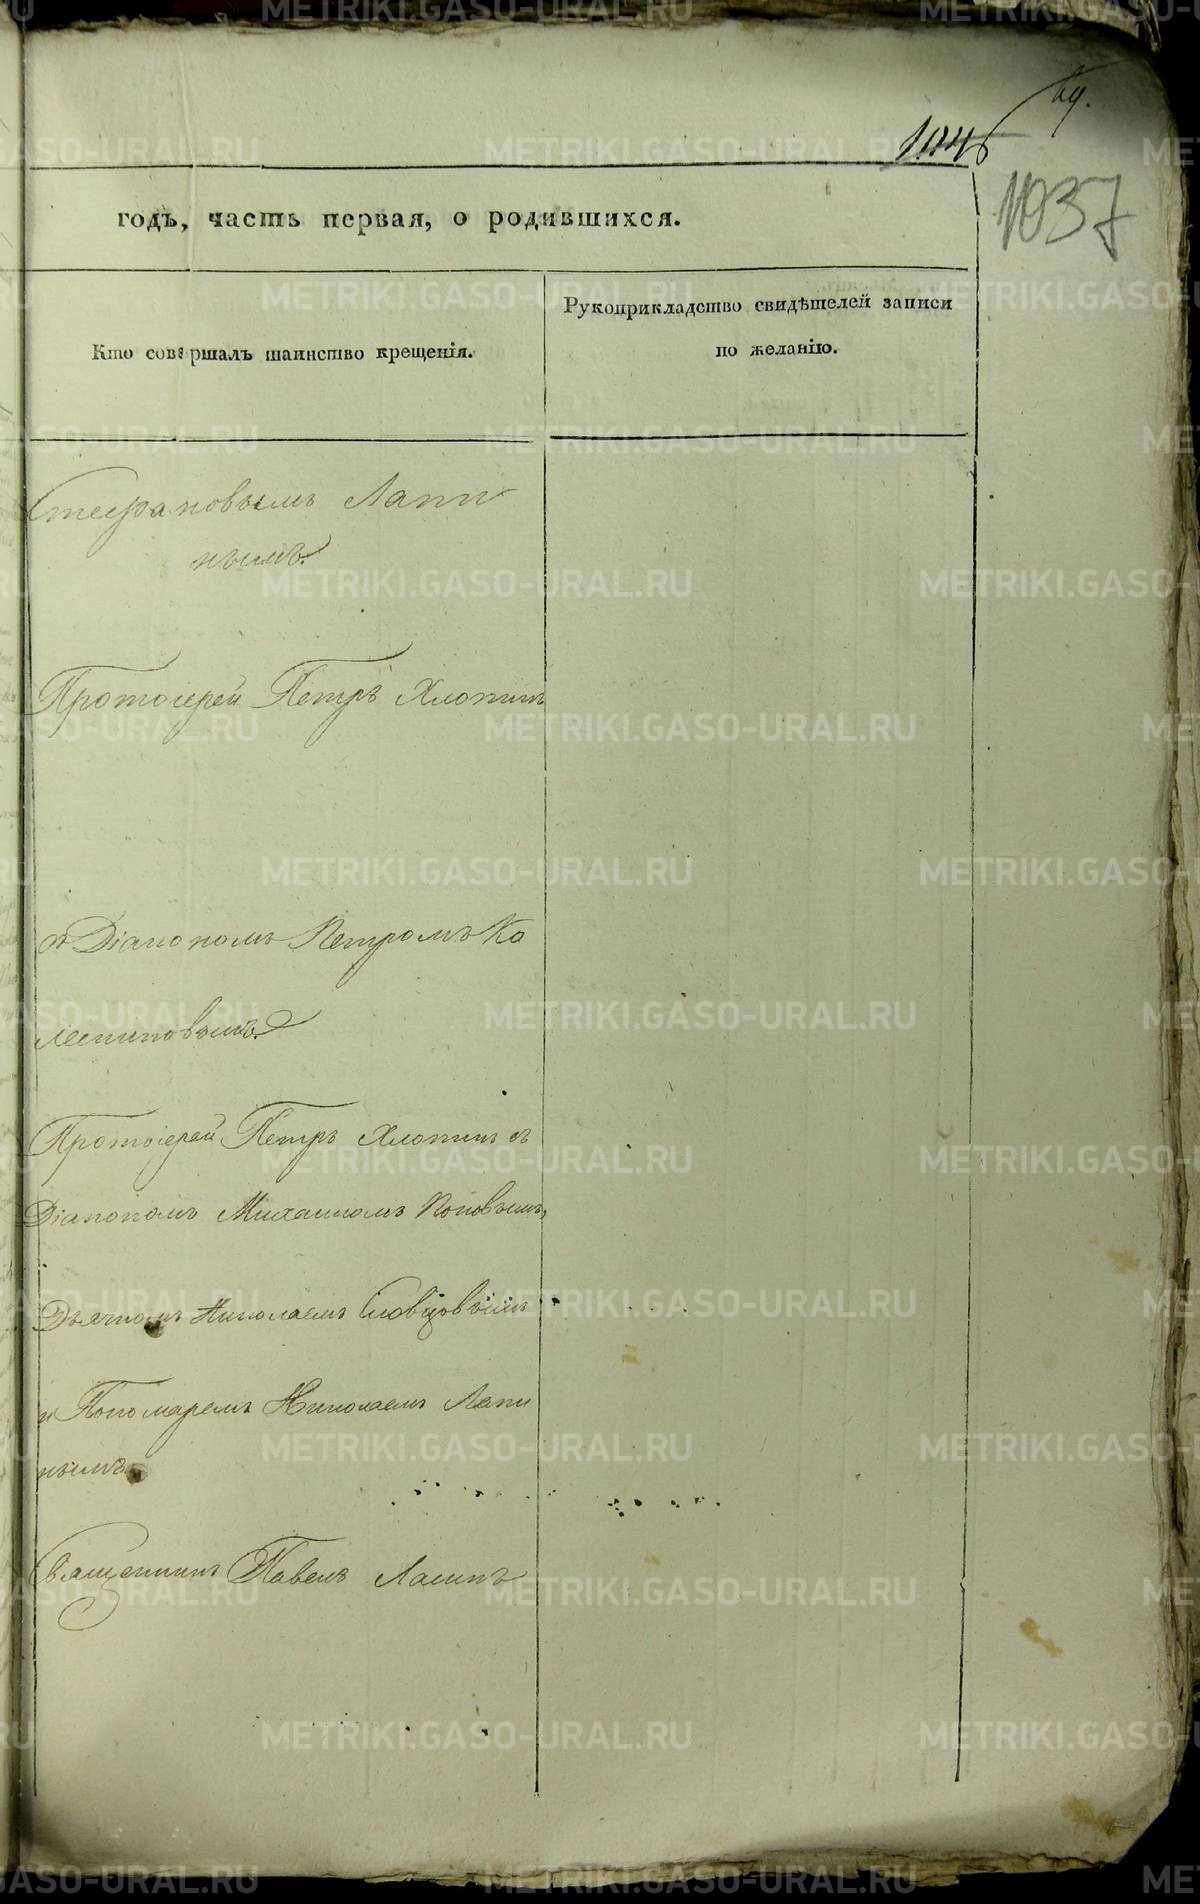 69.
1046
1037
годъ, часть первая, о родившихся.
Кто совершалъ таинство крещенія.
Рукоприкладство свидѣтелей записи
по желанію.
Стефановымъ Лапи
нымъ.
Протоіерей Петръ Хлопинъ
съ Діакономъ Петромъ Ко
Протоіерей Петръ Хлопинъ съ
Діакономъ Михаиломъ Поповымъ,
Дьячкомъ Николаемъ Словцовымъ
и Пономаремъ Николаемъ Лапи
нымъ
Священникъ Павелъ Лапинъ
METRIKI.GASO-URAL.RU